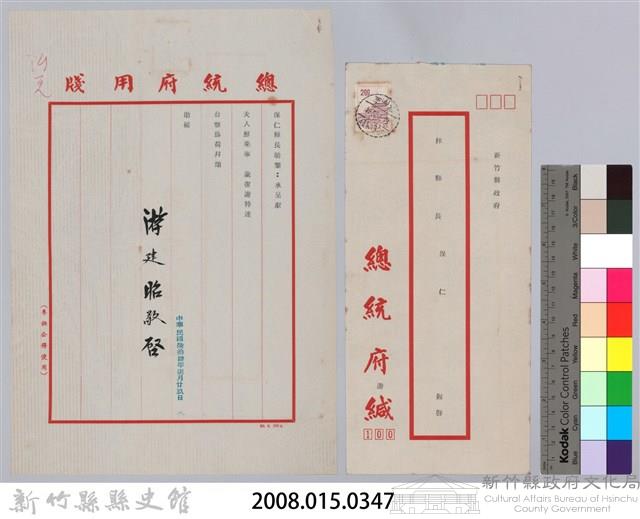 總統府用牋
保仁縣長勛鑒：承呈獻
夫人鮮果乖 箴復謝特達
台察為荷并頌
勛祺
游建昭敬啓
中華民國陸拾肆年柒月廿玖日
(專供公務使用)
200
新竹縣政府
林縣長 保仁
勛啓
總統府 游 緘
100
Kodak Color Control Patches
Blue
Cyan
Green
Yellow
Red
Magenta
White
3/Color
Black
新竹縣縣史館
2008.015.0347
新竹縣政府文化局
Cultural Affairs Bureau of Hsinchu
County Government